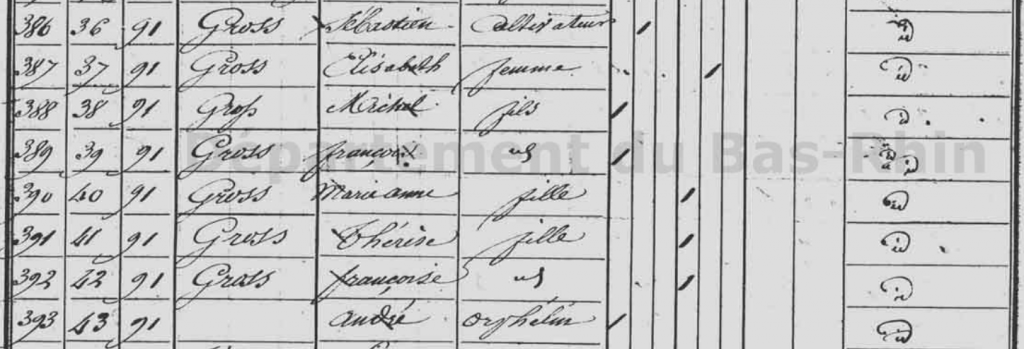 386 36 91 Gross Sébastien Cultivateur
387 37 91 Gross Elisabeth femme
388 38 91 Groß Michel fils
389 39 91 Gross françois id
390 40 91 Gross Marie anne fille
391 41 91 Gross Thérèse fille
392 42 91 Gross françoise id
393 43 91 André Orphélin
Département du Bas-Rhin